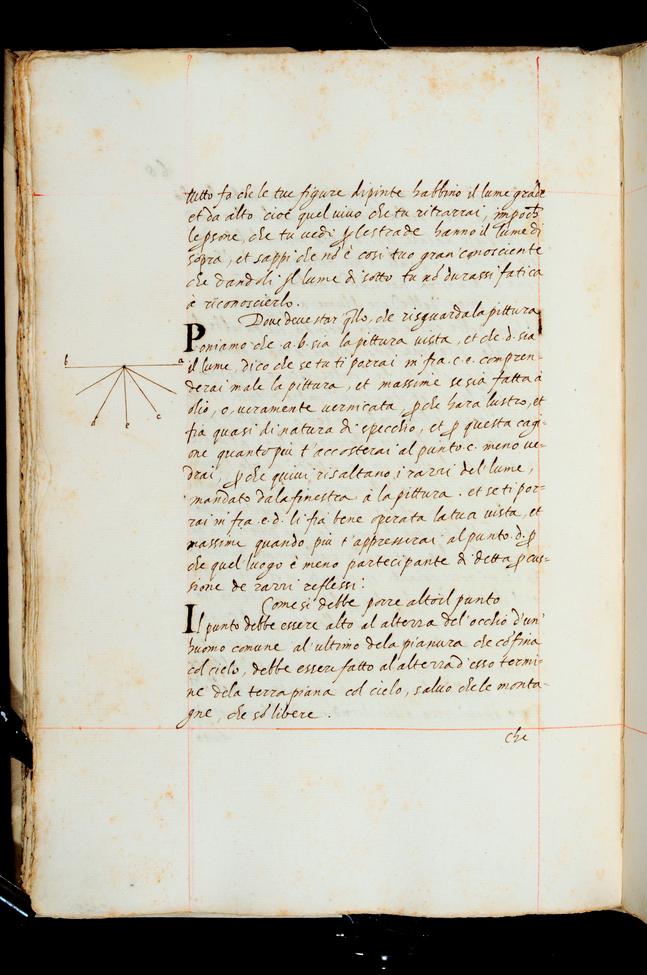 tutto fa che le tue figure dipinte habbino il lume grāde
et da alto cioè quel uiuo che tu ritrarrai, impoch̄
le ꝑsone, che tu uedi ꝑ le strade hanno il lume di
sopra, et sappi che nō è cosi tuo gran conosciente
che dandoli il lume di sotto tu nō durassi fatica
à riconoscierlo.
Doue deue star q̄llo, che risguarda la pittura
Poniamo che .a.b. sia la pittura uista, et che .d. sia
il lume, dico che se tu ti porrai in fra .c.e. compren-
derai male la pittura, et massime se sia fatta à
olio, o, ueramente uernicata, ꝑche hara lustro, et
fia quasi di natura di specchio, et ꝑ questa cagi-
one quanto più t'accosterai al punto .c. meno ue-
drai, ꝑche quiui risaltano i razzi del lume,
mandato da la finestra à la pittura. et se ti por-
rai in fra .e.d. li fia bene operata la tua uista, et
massime quando più t'appresserai al punto .d. ꝑ
che quel luogo è meno partecipante di detta ꝑcus-
sione de razzi reflessi.
Come si debbe porre alto il punto
Il punto debbe essere alto al alterra del' occhio d'un'
huomo comune al' ultimo de la pianura che cōfina
col cielo, debbe essere fatto al alterra d'esso termi-
ne dela terra piana col cielo, saluo che le monta-
gne, che sō libere.
che
b a
d e c